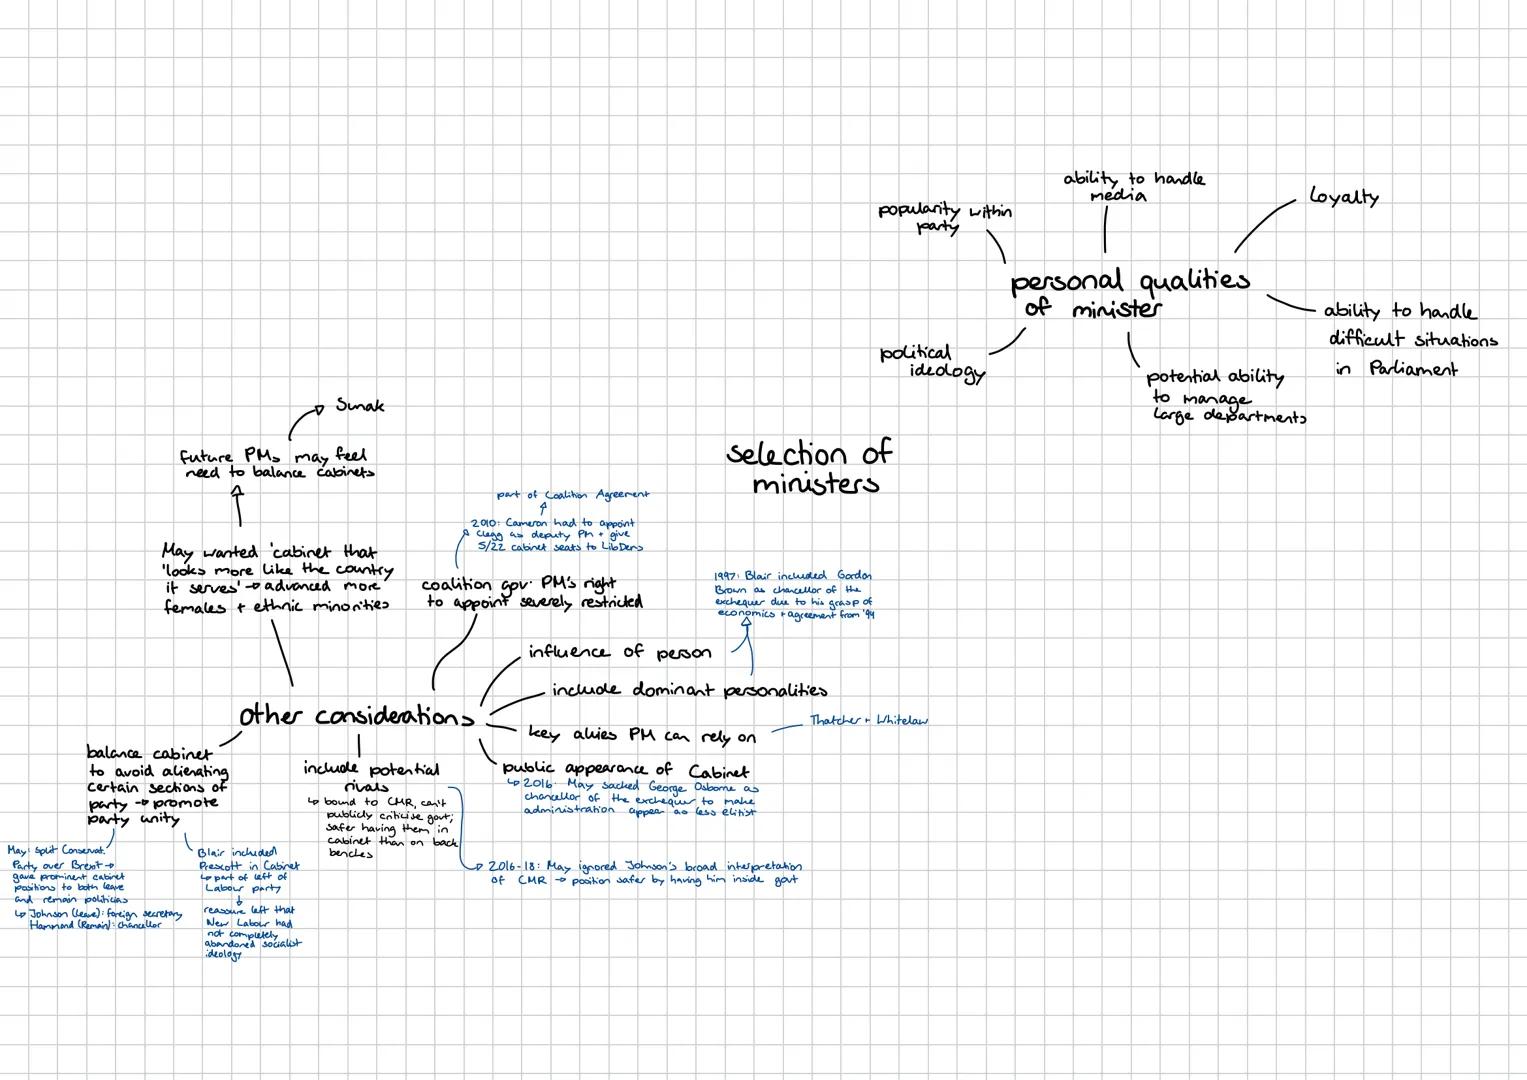 selection of
ministers
personal qualities
of minister
popularity within
party
ability to handle
media
Loyalty
ability to handle
difficult situations
in Parliament
potential ability
to manage
large departments
political
ideology
other considerations
May wanted 'cabinet that
'looks more like the country
it serves' → advanced more
females + ethnic minorities
future PMs may feel
need to balance cabinets
Sunak
coalition gov: PM's right
to appoint severely restricted
2010: Cameron had to appoint
Clegg as deputy PM + give
5/22 cabinet seats to LibDems
part of Coalition Agreement
influence of person
include dominant personalities
1997: Blair included Gordon
Brown as chancellor of the
exchequer due to his grasp of
economics + agreement from '94
key allies PM can rely on
Thatcher + Whitelaw
public appearance of Cabinet
↳ 2016: May sacked George Osborne as
chancellor of the exchequer to make
administration appear as less elitist
include potential
rivals
↳ bound to CMR, can't
publicly criticise govt;
safer having them in
cabinet than on back
benches
2016-18: May ignored Johnson's broad interpretation
of CMR → position safer by having him inside govt
balance cabinet
to avoid alienating
certain sections of
party → promote
party unity
May: split Conservat.
Party over Brexit →
gave prominent cabinet
positions to both leave
and remain politicias
↳ Johnson (leave): foreign secretary
Hammond (Remain): chancellor
Blair included
Prescott in Cabinet
↳ part of left of
Labour party
↓
reassure left that
New Labour had
not completely
abandoned socialist
ideology